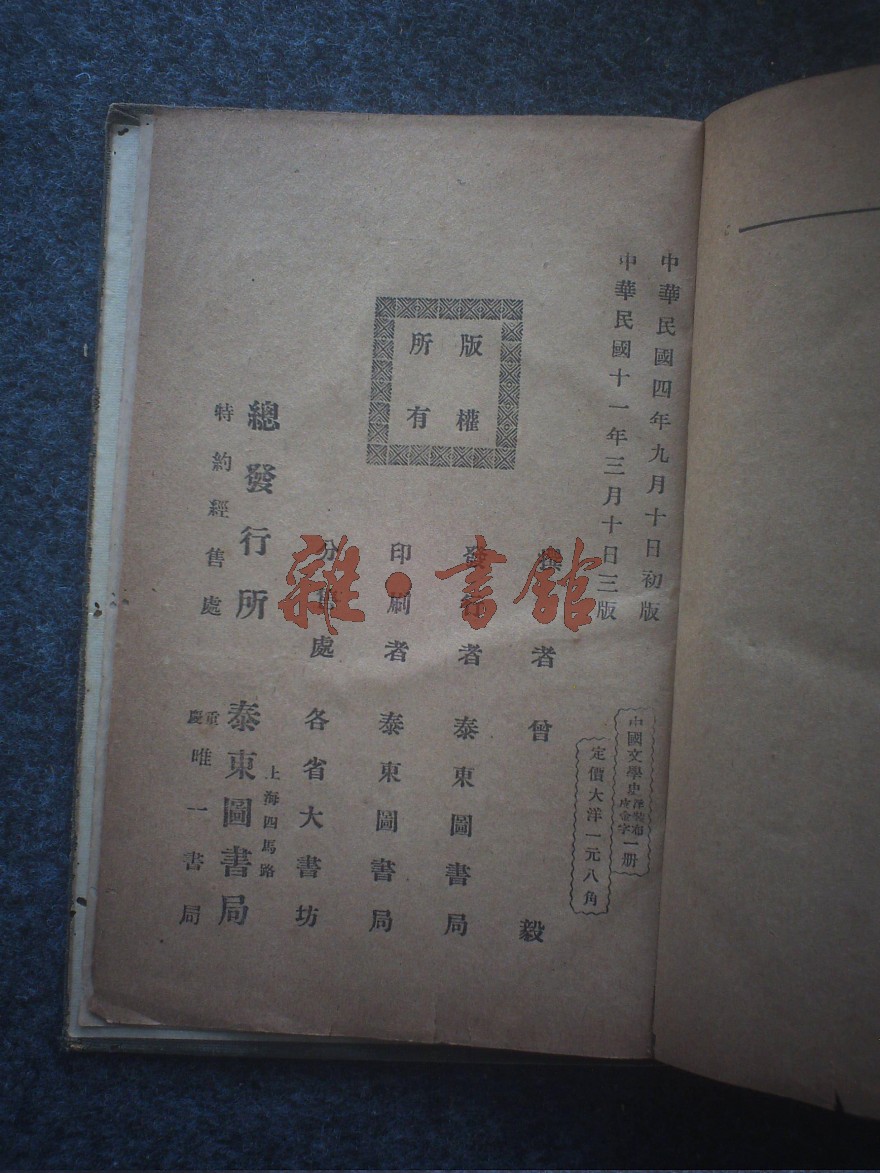 中華民國四年九月十日初版
中華民國十一年三月十日三版
中國文學史洋裝布皮金字一册
定價大洋一元八角
版權所有
撰者 曾毅
發行者 泰東圖書局
印刷者 泰東圖書局
分售處 各省大書坊
上海四馬路
總發行所 泰東圖書局
特約經售處 重慶唯一書局
雜·書館